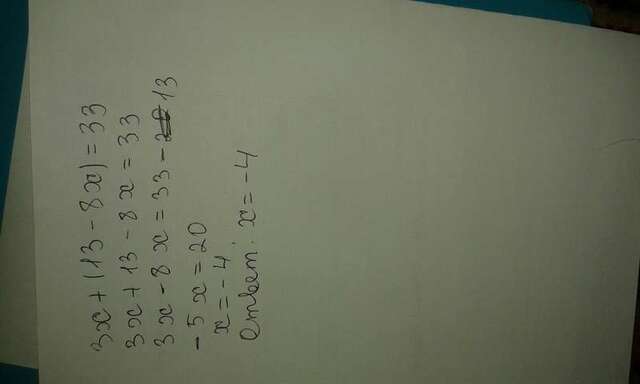 3x+(13-8x)=33
3x+13-8x=33
3x-8x=33-13
-5x=20
x=-4
Ответ: x=-4